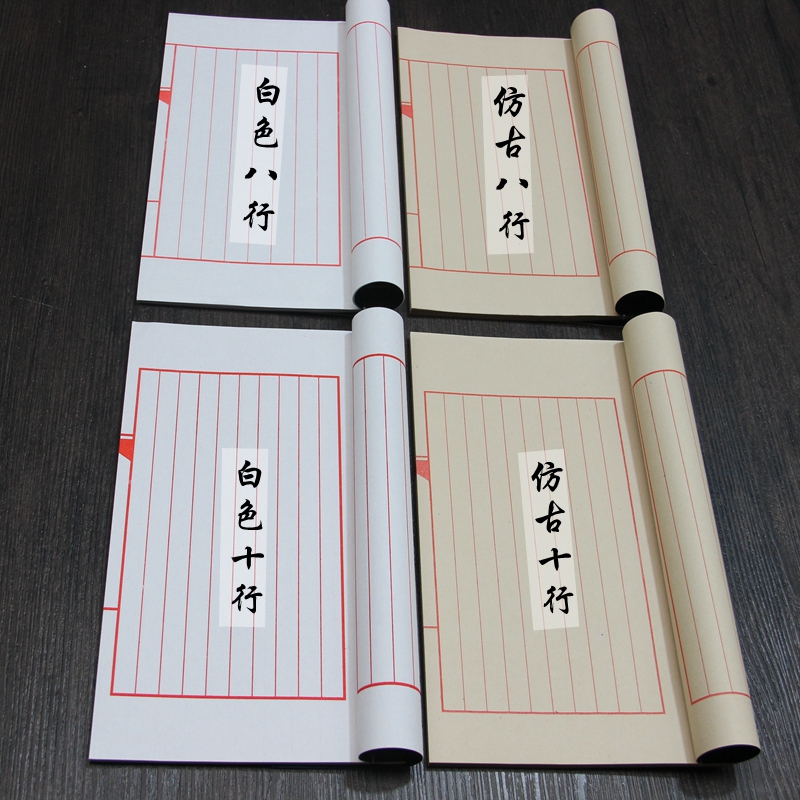 白色八行
仿古八行
白色十行
仿古十行